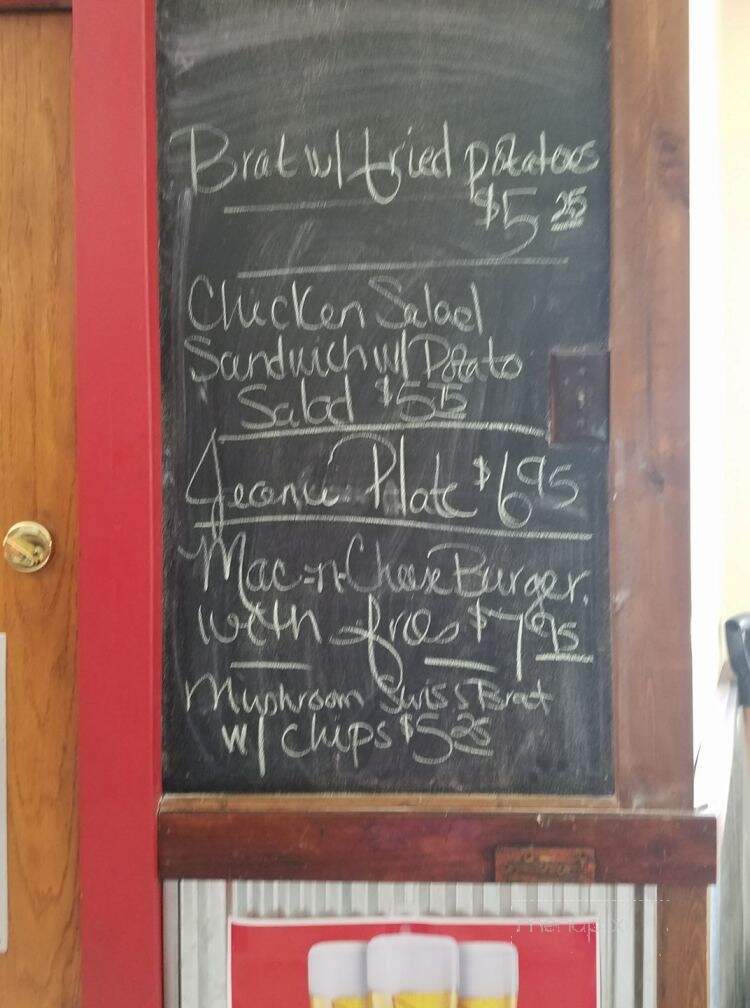 Brat w/ fried potatoes
$5 25
Chicken Salad
Sandwich w/ Potato
Salad $5 15
Jeanie Plate $6 95
Mac-n-Cheese Burger
with fries $7 95
Mushroom Swiss Brat
w/ chips $5 25
menupix